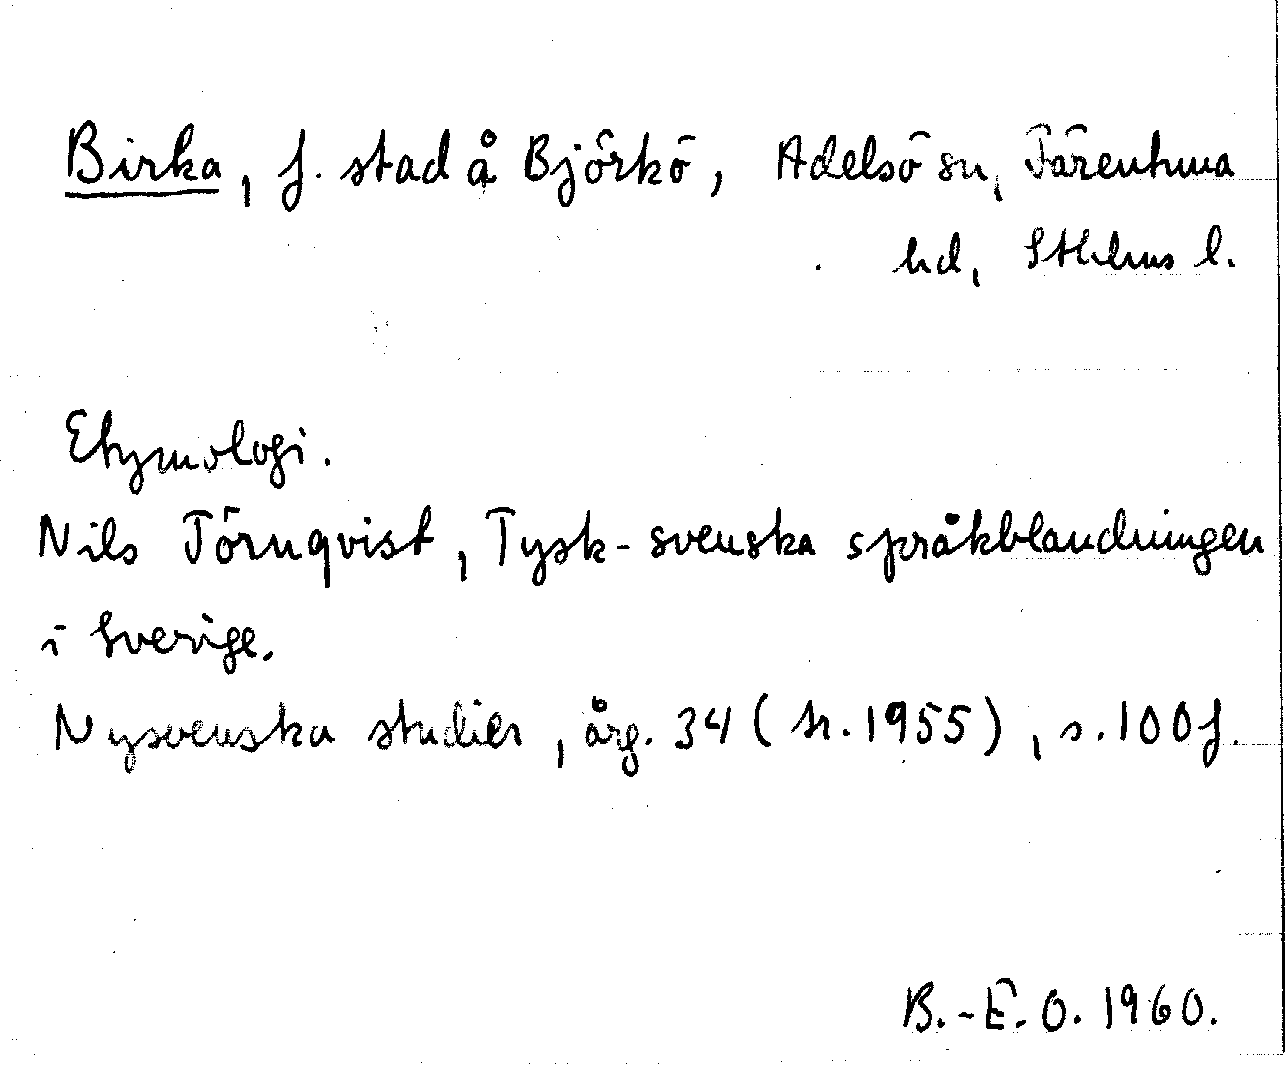 Birka, f. stad å Björkö, Adelsö sn, Färentuna
hd, Sthlms l.
Etymologi.
Nils Törnqvist, Tysk-svenska språkblandningen
i Sverige.
Nysvenska studier, årg. 34 (tr. 1955), s. 100 f.
B.-E. O. 1960.